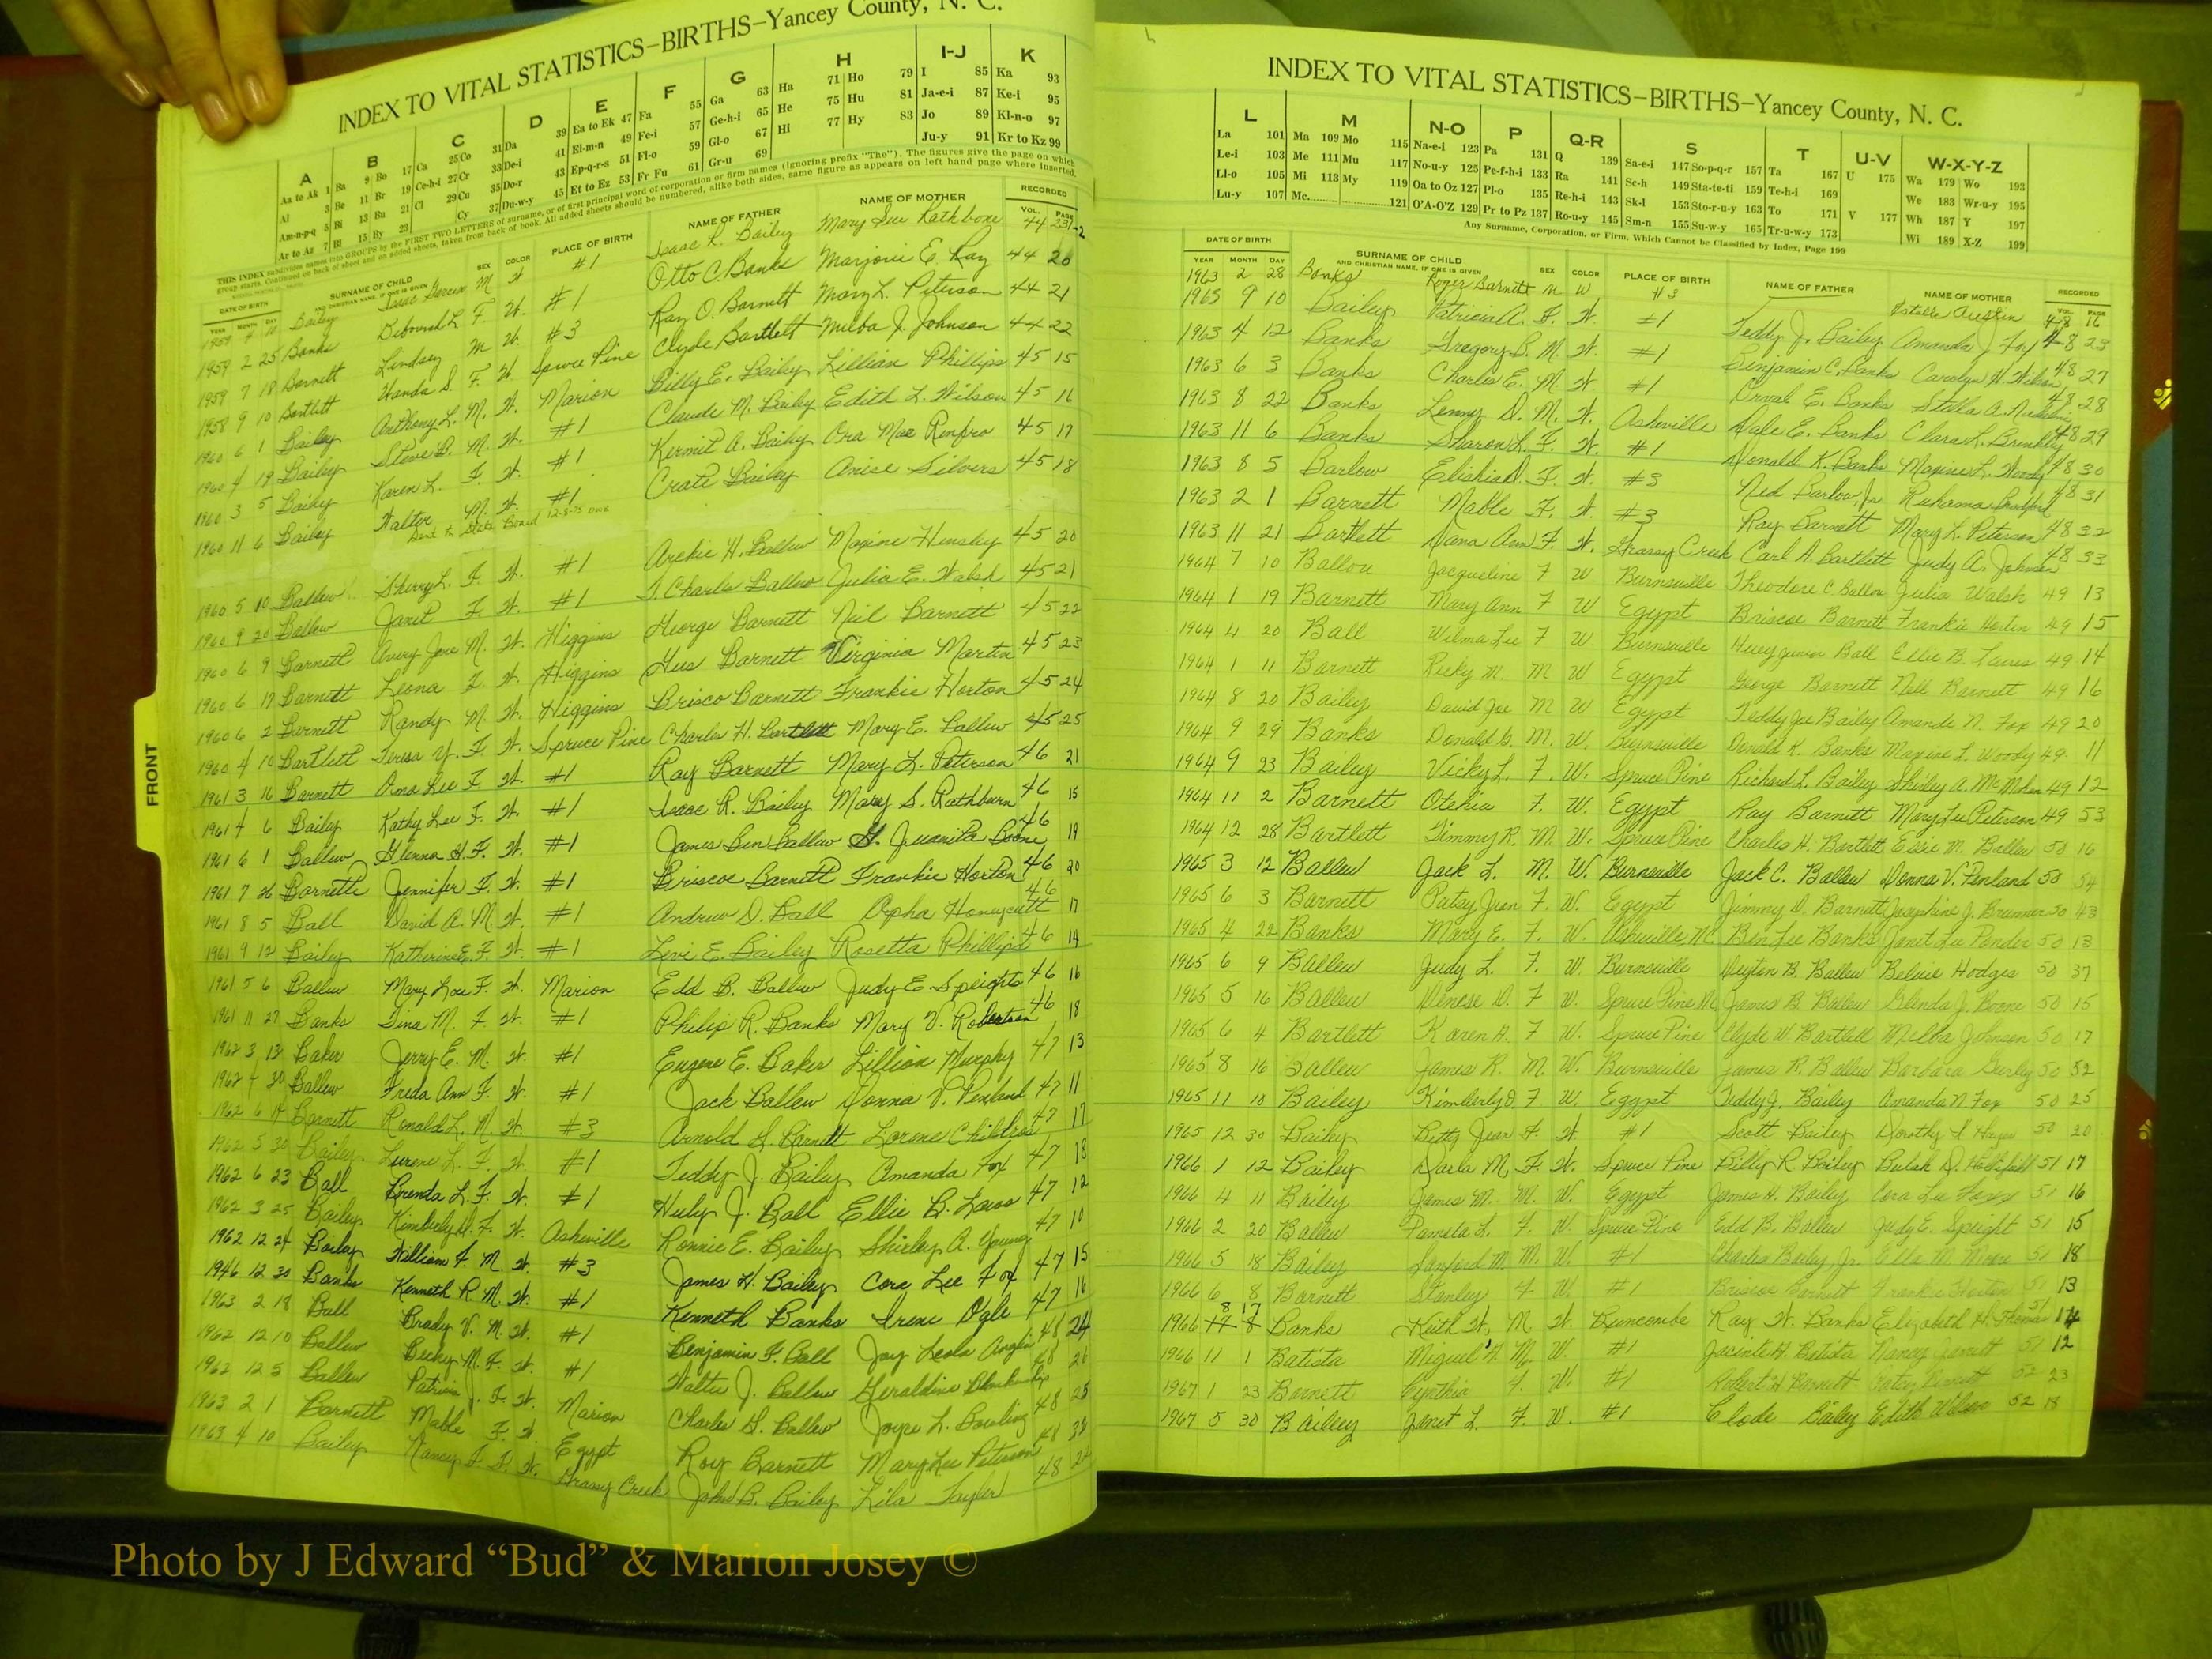 INDEX TO VITAL STATISTICS–BIRTHS–Yancey County, N. C.
A B C D E F G H I-J K
Aa to Ak 1 Ba 9 Bo 17 Ca 25 Co 31 Da 39 Ea to Ek 47 Fa 55 Ga 63 Ha 71 Ho 79 I 85 Ka 93
Al 3 Be 11 Br 19 Ce-h-i 27 Cr 33 De-i 41 El-m-n 49 Fe-i 57 Ge-h-i 65 He 75 Hu 81 Ja-e-i 87 Ke-i 95
Am-n-p-q 5 Bi 13 Bu 21 Cl 29 Cu 35 Do-r 43 Ep-q-r-s 51 Fl-o 59 Gl-o 67 Hi 77 Hy 83 Jo 89 Kl-n-o 97
Ar to Az 7 Bl 15 By 23 Cy 37 Du-w-y 45 Et to Ez 53 Fr Fu 61 Gr-u 69 Ju-y 91 Kr to Kz 99
THIS INDEX subdivides names into GROUPS by the FIRST TWO LETTERS of surname, or of first principal word of corporation or firm names (ignoring prefix "The"). The figures give the page on which
group starts. Continued on back of sheet and on added sheets, taken from back of book. All added sheets should be numbered, alike both sides, same figure as appears on left hand page where inserted.
DATE OF BIRTH SURNAME OF CHILD AND CHRISTIAN NAME, IF ONE IS GIVEN SEX COLOR PLACE OF BIRTH NAME OF FATHER NAME OF MOTHER RECORDED
YEAR MONTH DAY VOL. PAGE
1959 Bailey Isaac M W #1 Isaac R. Bailey Mary Sue Rathbone 44
1959 2 25 Banks Deborah L. F. W. #1 Otto C. Banks Marjorie E. Ray 44 20
1959 7 18 Barnett Lindsey M W. #3 Ray O. Barnett Mary L. Peterson 44 21
1958 9 10 Bartlett Wanda S. F. W. Spruce Pine Clyde Bartlett Melba J. Johnson 44 22
1960 6 1 Bailey Anthony L. M. W. Marion Billy E. Bailey Lillian Phillips 45 15
1960 4 19 Bailey Steve D. M. W. #1 Claude M. Bailey Edith L. Wilson 45 16
1960 3 5 Bailey Karen L. F. W. #1 Kermit A. Bailey Ora Mae Renfro 45 17
1960 11 6 Bailey Walter M. W. #1 Crate Bailey Anise Silvers 45 18
Sent to State Board 12-8-75
1960 5 10 Ballew Sherry L. F. W. #1 Archie H. Ballew Maxine Hensley 45 20
1960 9 20 Ballew Janet F. W. #1 T. Charles Ballew Julia E. Walsh 45 21
1960 6 9 Barnett Avery Joe M. W. Higgins George Barnett Niel Barnett 45 22
1960 6 17 Barnett Leona F. W. Higgins Gus Barnett Virginia Martin 45 23
1960 6 2 Barnett Randy M. W. Higgins Brisco Barnett Frankie Horton 45 24
1960 4 10 Bartlett Teresa Y. F. W. Spruce Pine Charles H. Bartlett Mary E. Ballew 45 25
1961 3 16 Barnett Oma Lee F. W. #1 Ray Barnett Mary L. Peterson 46 21
1961 4 6 Bailey Kathy Lee F. W. #1 Isaac R. Bailey Mary S. Rathburn 46 15
1961 6 1 Ballew Glenna H. F. W. #1 James Ben Ballew G. Juanita Boone 46 19
1961 7 26 Barnette Jennifer F. W. #1 Briscoe Barnett Frankie Horton 46 20
1961 8 5 Ball David A. M. W. #1 Andrew D. Ball Orpha Honeycutt 46 17
1961 9 12 Bailey Katherine E. F. W. #1 Levi E. Bailey Rosetta Phillips 46 14
1961 5 6 Ballew Mary Lou F. W. Marion Edd B. Ballew Judy E. Speights 46 16
1961 11 27 Banks Tina M. F. W. #1 Philip R. Banks Mary V. Robertson 46 18
1962 3 13 Baker Jerry E. M. W. #1 Eugene E. Baker Lillion Murphy 47 13
1962 30 Ballew Freda Ann F. W. #1 Jack Ballew Donna V. Penland 47 11
1962 6 14 Barnett Ronald L. M. W. #3 Arnold Barnett Lorene Childres 47 17
1962 5 30 Bailey L. F. W. #1 Teddy J. Bailey Amanda Fox 47 18
1962 6 23 Ball Brenda L. F. W. #1 Huly J. Ball Ellie B. Laws 47 12
1962 3 25 Bailey Kimberly F. W. Asheville Ronnie E. Bailey Shirley A. Young 47 10
1962 12 24 Bailey William F. M. W. #3 James H. Bailey Cora Lee Fox 47 15
1946 12 30 Banks Kenneth R. M. W. #1 Kenneth Banks Irene Ogle 47 16
1963 2 18 Ball Brady V. M. W. #1 Benjamin F. Ball Joy Leola 48 24
1962 12 10 Ballew Becky M. F. W. #1 Walter J. Ballew Geraldine 48
1962 12 5 Ballew Patricia J. F. W. Marion Charles Ballew Joyce L. Bowling 48 25
1963 2 1 Barnett Mable F. W. Egypt Roy Barnett Mary Lee Peterson 48
1963 4 10 Bailey Nancy F. W. Grassy Creek John B. Bailey Lila Taylor 48
FRONT
INDEX TO VITAL STATISTICS–BIRTHS–Yancey County, N. C.
L M N-O P Q-R S T U-V W-X-Y-Z
La 101 Ma 109 Mo 115 Na-e-i 123 Pa 131 Q 139 Sa-e-i 147 So-p-q-r 157 Ta 167 U 175 Wa 179 Wo 193
Le-i 103 Me 111 Mu 117 No-u-y 125 Pe-f-h-i 133 Ra 141 Sc-h 149 Sta-te-ti 159 Te-h-i 169 We 183 Wr-u-y 195
Ll-o 105 Mi 113 My 119 Oa to Oz 127 Pl-o 135 Re-h-i 143 Sk-l 153 Sto-r-u-y 163 To 171 V 177 Wh 187 Y 197
Lu-y 107 Mc 121 O'A-O'Z 129 Pr to Pz 137 Ro-u-y 145 Sm-n 155 Su-w-y 165 Tr-u-w-y 173 Wi 189 X-Z 199
Any Surname, Corporation, or Firm, Which Cannot be Classified by Index, Page 199
DATE OF BIRTH SURNAME OF CHILD AND CHRISTIAN NAME, IF ONE IS GIVEN SEX COLOR PLACE OF BIRTH NAME OF FATHER NAME OF MOTHER RECORDED
YEAR MONTH DAY VOL. PAGE
1963 2 28 Banks Roger Barnett M W #3 Estelle 48 16
1963 9 10 Bailey Patricia A. F. W. #1 Teddy J. Bailey Amanda J. Fox 48 23
1963 4 12 Banks Gregory B. M. W. #1 Benjamin C. Banks Carolyn H. Wilson 48 27
1963 6 3 Banks Charles E. M. W. #1 Orval E. Banks Stella A. 48 28
1963 8 22 Banks Lenny D. M. W. Asheville Dale E. Banks Clara L. 48 29
1963 11 6 Banks Sharon L. F. W. #1 Donald K. Banks Maxine L. Woody 48 30
1963 8 5 Barlow F. W. #3 Ned Barlow Jr. Ruhama 48 31
1963 2 1 Barnett Mable F. W. #3 Ray Barnett Mary L. Peterson 48 32
1963 11 21 Bartlett Dana Ann F. W. Grassy Creek Carl A. Bartlett Judy A. Johnson 48 33
1964 7 10 Ballou Jacqueline F W Burnsville Theodore C. Ballou Julia Walsh 49 13
1964 1 19 Barnett Mary Ann F W Egypt Briscoe Barnett Frankie Horton 49 15
1964 4 20 Ball Wilma Lee F W Burnsville Ball Ellie B. 49 14
1964 1 11 Barnett Ricky M. M W Egypt George Barnett Nell Barnett 49 16
1964 8 20 Bailey David Joe M W Egypt Teddy Joe Bailey Amanda N. Fox 49 20
1964 9 29 Banks Donald G. M. W. Burnsville Donald K. Banks Maxine L. Woody 49 11
1964 9 23 Bailey Vicky L. F. W. Spruce Pine Richard L. Bailey Shirley A. McMahan 49 12
1964 11 2 Barnett Otehia F. W. Egypt Ray Barnett Mary Lee Peterson 49 53
1964 12 28 Bartlett Timmy R. M. W. Spruce Pine Charles H. Bartlett Essie M. Ballew 50 16
1965 3 12 Ballew Jack L. M. W. Burnsville Jack C. Ballew Donna V. Penland 50 54
1965 6 3 Barnett Patsy Jean F. W. Egypt Jimmy D. Barnett Josephine J. Brummer 50 43
1965 4 22 Banks Mary E. F. W. Asheville NC Ben Lee Banks Janet Lee Ponder 50 13
1965 6 9 Ballew Judy L. F. W. Burnsville Deyton B. Ballew Belvie Hodges 50 37
1965 5 16 Ballew Denese D. F W. Spruce Pine NC James B. Ballew Glenda J. Boone 50 15
1965 6 4 Bartlett Karen A. F W. Spruce Pine Clyde W Bartlett Melba Johnson 50 17
1965 8 16 Ballew James R. M. W. Burnsville James R. Ballew Barbara Gurley 50 52
1965 11 10 Bailey Kimberly D. F W. Egypt Teddy J. Bailey Amanda N. Fox 50 25
1965 12 30 Bailey Betty Jean F. W. #1 Scott Bailey Dorothy 50 20
1966 1 12 Bailey Darla M. F. W. Spruce Pine Billy R. Bailey Bulah D. Hollifield 51 17
1966 4 11 Bailey James M. M. W. Egypt James H. Bailey Cora Lee 51 16
1966 2 20 Ballew Pamela L. F. W. Spruce Pine Edd B. Ballew Judy E. Speight 51 15
1966 5 18 Bailey Sanford M. M. W. #1 Charles Baily Jr. Ella M. Moore 51 18
1966 6 8 Barnett Stanley F W. #1 Briscoe Barnett Frankie Horton 51 13
8 17
1966 Banks Keith W. M W. Buncombe Ray W. Banks Elizabeth H. Thomas 51 14
1966 11 1 Batista Miguel A. M. W. #1 Jacinto H. Batista Nancy 51 12
1967 1 23 Barnett Cynthia F. W. #1 Robert H Barnett 52 23
1967 5 30 Bailey Janet L. F. W. #1 Clode Bailey Edith Wilson 52 18
Photo by J Edward “Bud” & Marion Josey ©